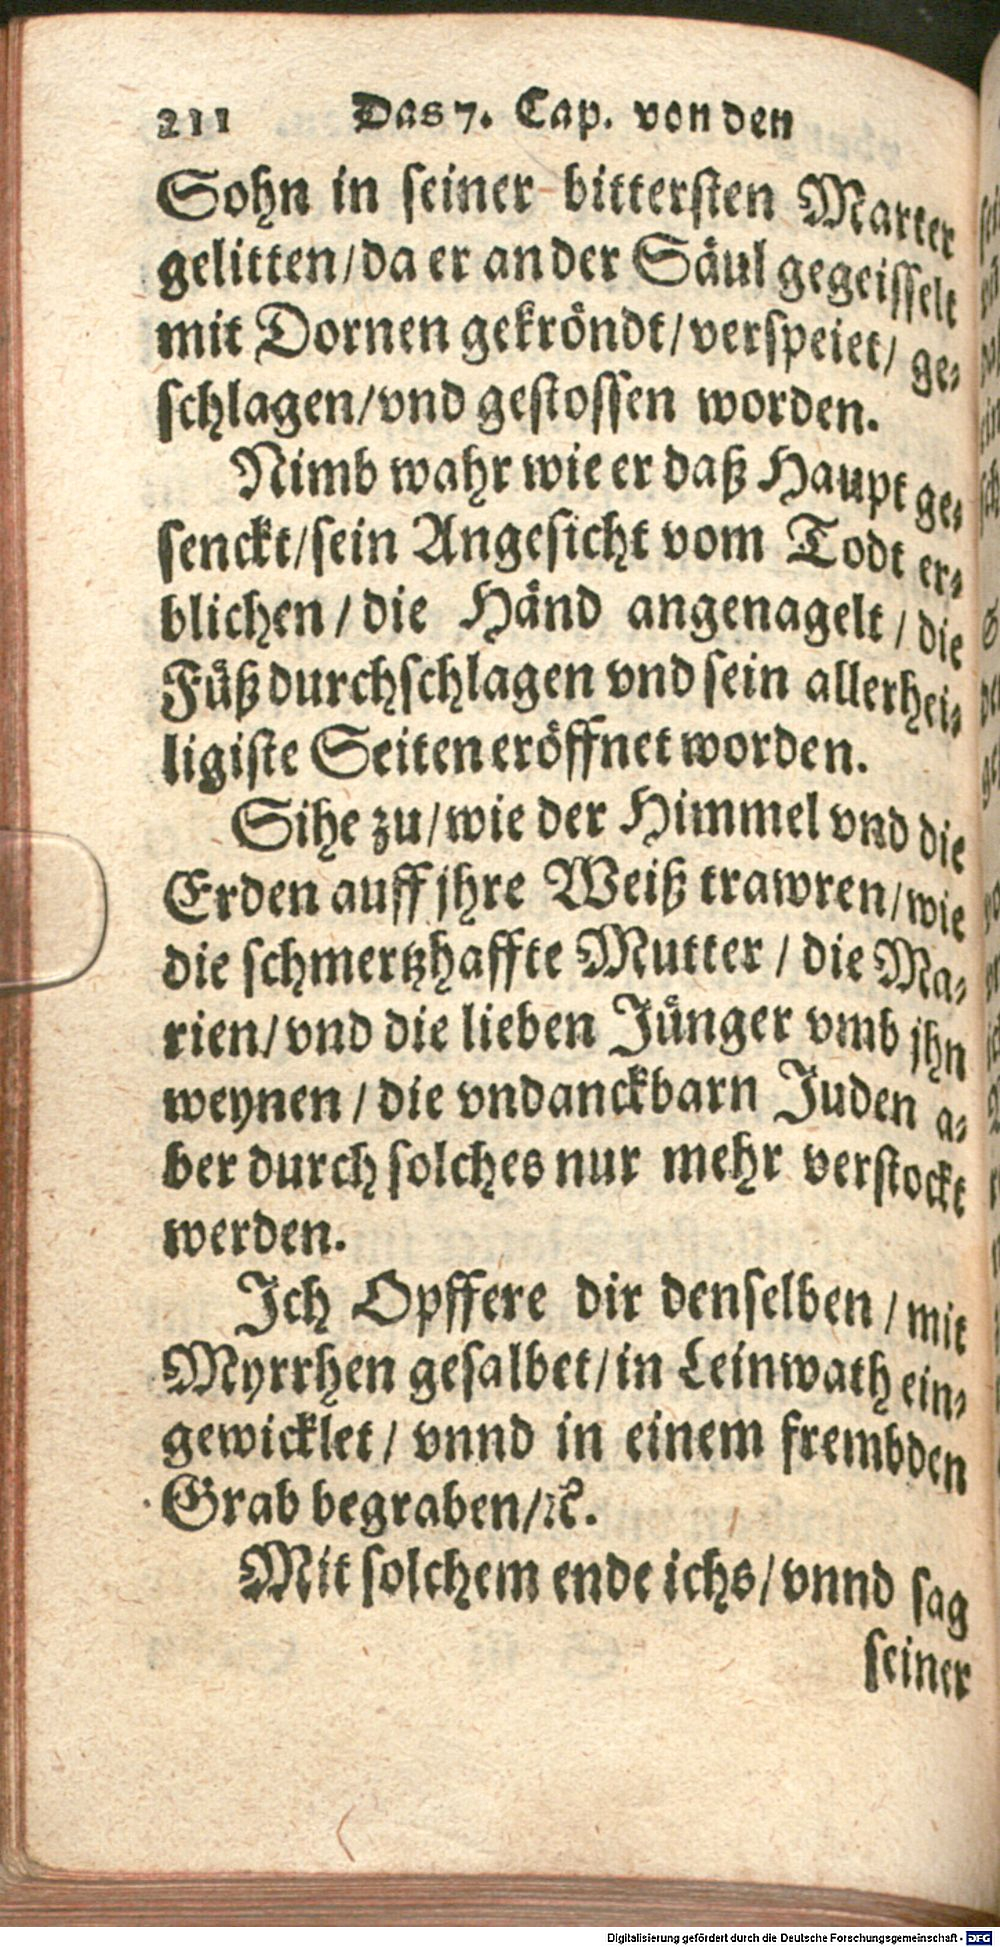 211 Das 7. Cap. von den
Sohn in seiner bittersten Marter
gelitten/da er an der Säul gegeisselt
mit Dornen gekröndt/verspeiet/ ge-
schlagen/vnd gestossen worden.
Nimb wahr wie er daß Haupt ge-
senckt/sein Angesicht vom Todt er-
blichen/die Händ angenagelt/die
Füß durchschlagen vnd sein allerhei-
ligiste Seiten eröffnet worden.
Sihe zu/wie der Himmel vnd die
Erden auff jhre Weiß trawren/wie
die schmertzhaffte Mutter/die Ma-
rien/vnd die lieben Jünger vmb jhn
weynen/die vndanckbarn Juden a-
ber durch solches nur mehr verstockt
werden.
Ich Opffere dir denselben/mit
Myrrhen gesalbet/in Leinwath ein-
gewicklet/vnnd in einem frembden
Grab begraben/ꝛc.
Mit solchem ende ichs/vnnd sag
seiner
Digitalisierung gefördert durch die Deutsche Forschungsgemeinschaft - DFG